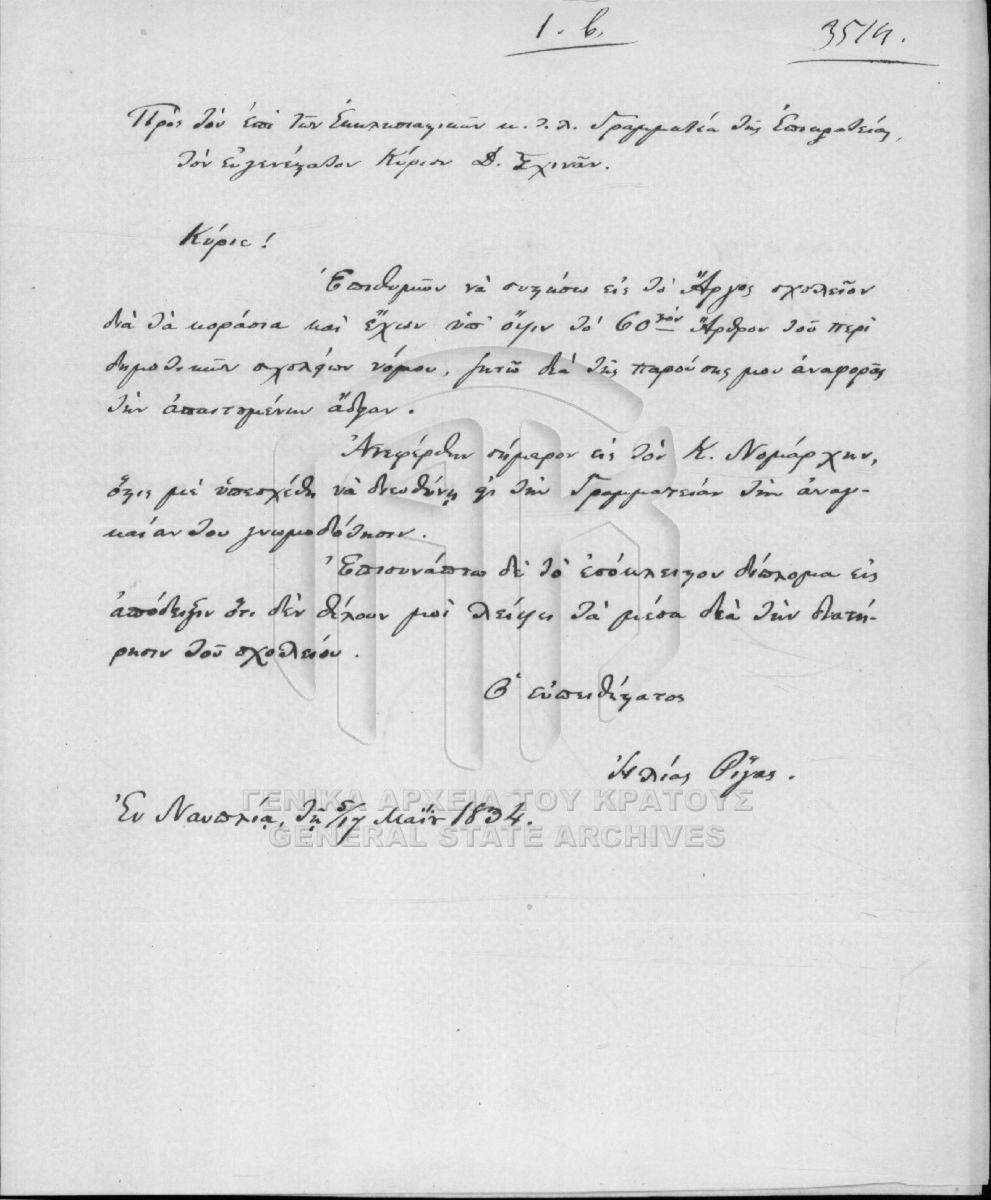 1. b. 3514.
Πρὸς τὸν ἐπὶ τῶν Ἐκκλησιαστικῶν κ.τ.λ. Γραμματέα τῆς Ἐπικρατείας,
τὸν εὐγενέστατον Κύριον Δ. Σχινᾶν.
Κύριε!
Ἐπιθυμῶν νὰ συστήσω εἰς τὸ Ἄργος σχολεῖον
διὰ τὰ κοράσια καὶ ἔχων ὑπ' ὄψιν τὸ 60τὸν Ἄρθρον τοῦ περὶ
δημοτικῶν σχολείων νόμου, ζητῶ διὰ τῆς παρούσης μου ἀναφορᾶς
τὴν ἀπαιτουμένην ἄδειαν.
Ἀνεφέρθην σήμερον εἰς τὸν Κ. Νομάρχην,
ὅστις μὲ ὑπεσχέθη νὰ διευθύνῃ εἰς τὴν Γραμματείαν τὴν ἀναγ-
καίαν του γνωμοδότησιν.
Ἐπισυνάπτω δὲ τὸ ἐσόκλειστον δίπλομα εἰς
ἀπόδειξιν ὅτι δὲν θέλουν μοὶ λείψει τὰ μέσα διὰ τὴν διατή-
ρησιν τοῦ σχολείου.
Ὁ εὐπειθέστατος
Ἠλίας Ῥίζος.
Ἐν Ναυπλίᾳ, τῇ 5/17 Μαΐου 1834.
ΓΕΝΙΚΑ ΑΡΧΕΙΑ ΤΟΥ ΚΡΑΤΟΥΣ
GENERAL STATE ARCHIVES